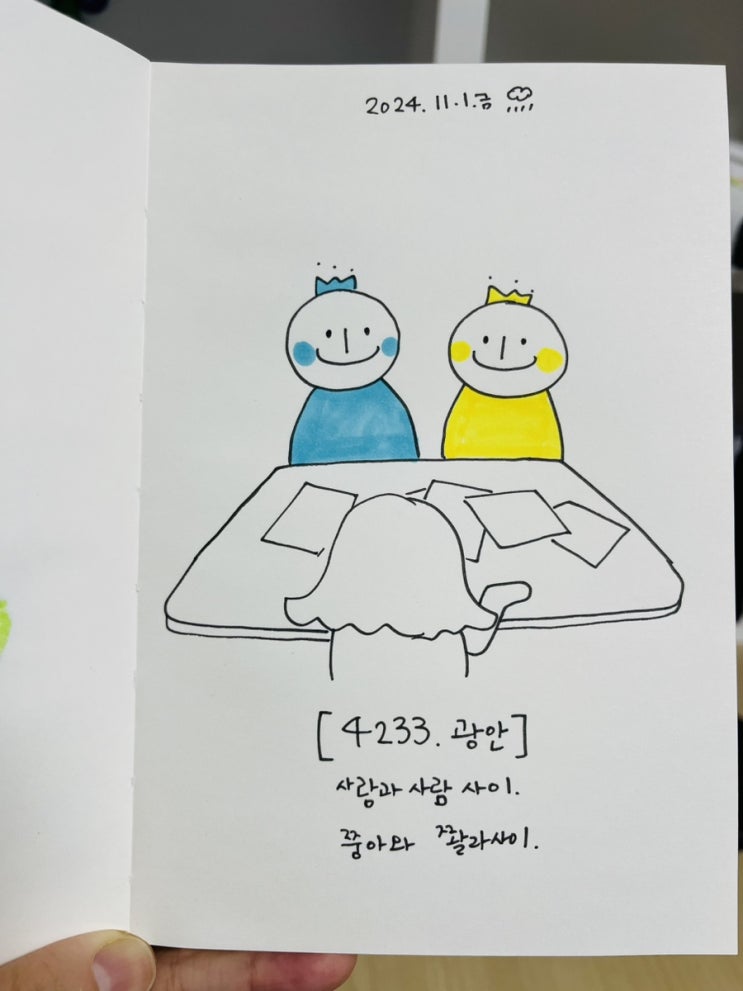 2024. 11. 1. 금
[4233. 광안]
사람과 사람 사이.
쭝아와 쫠라사이.